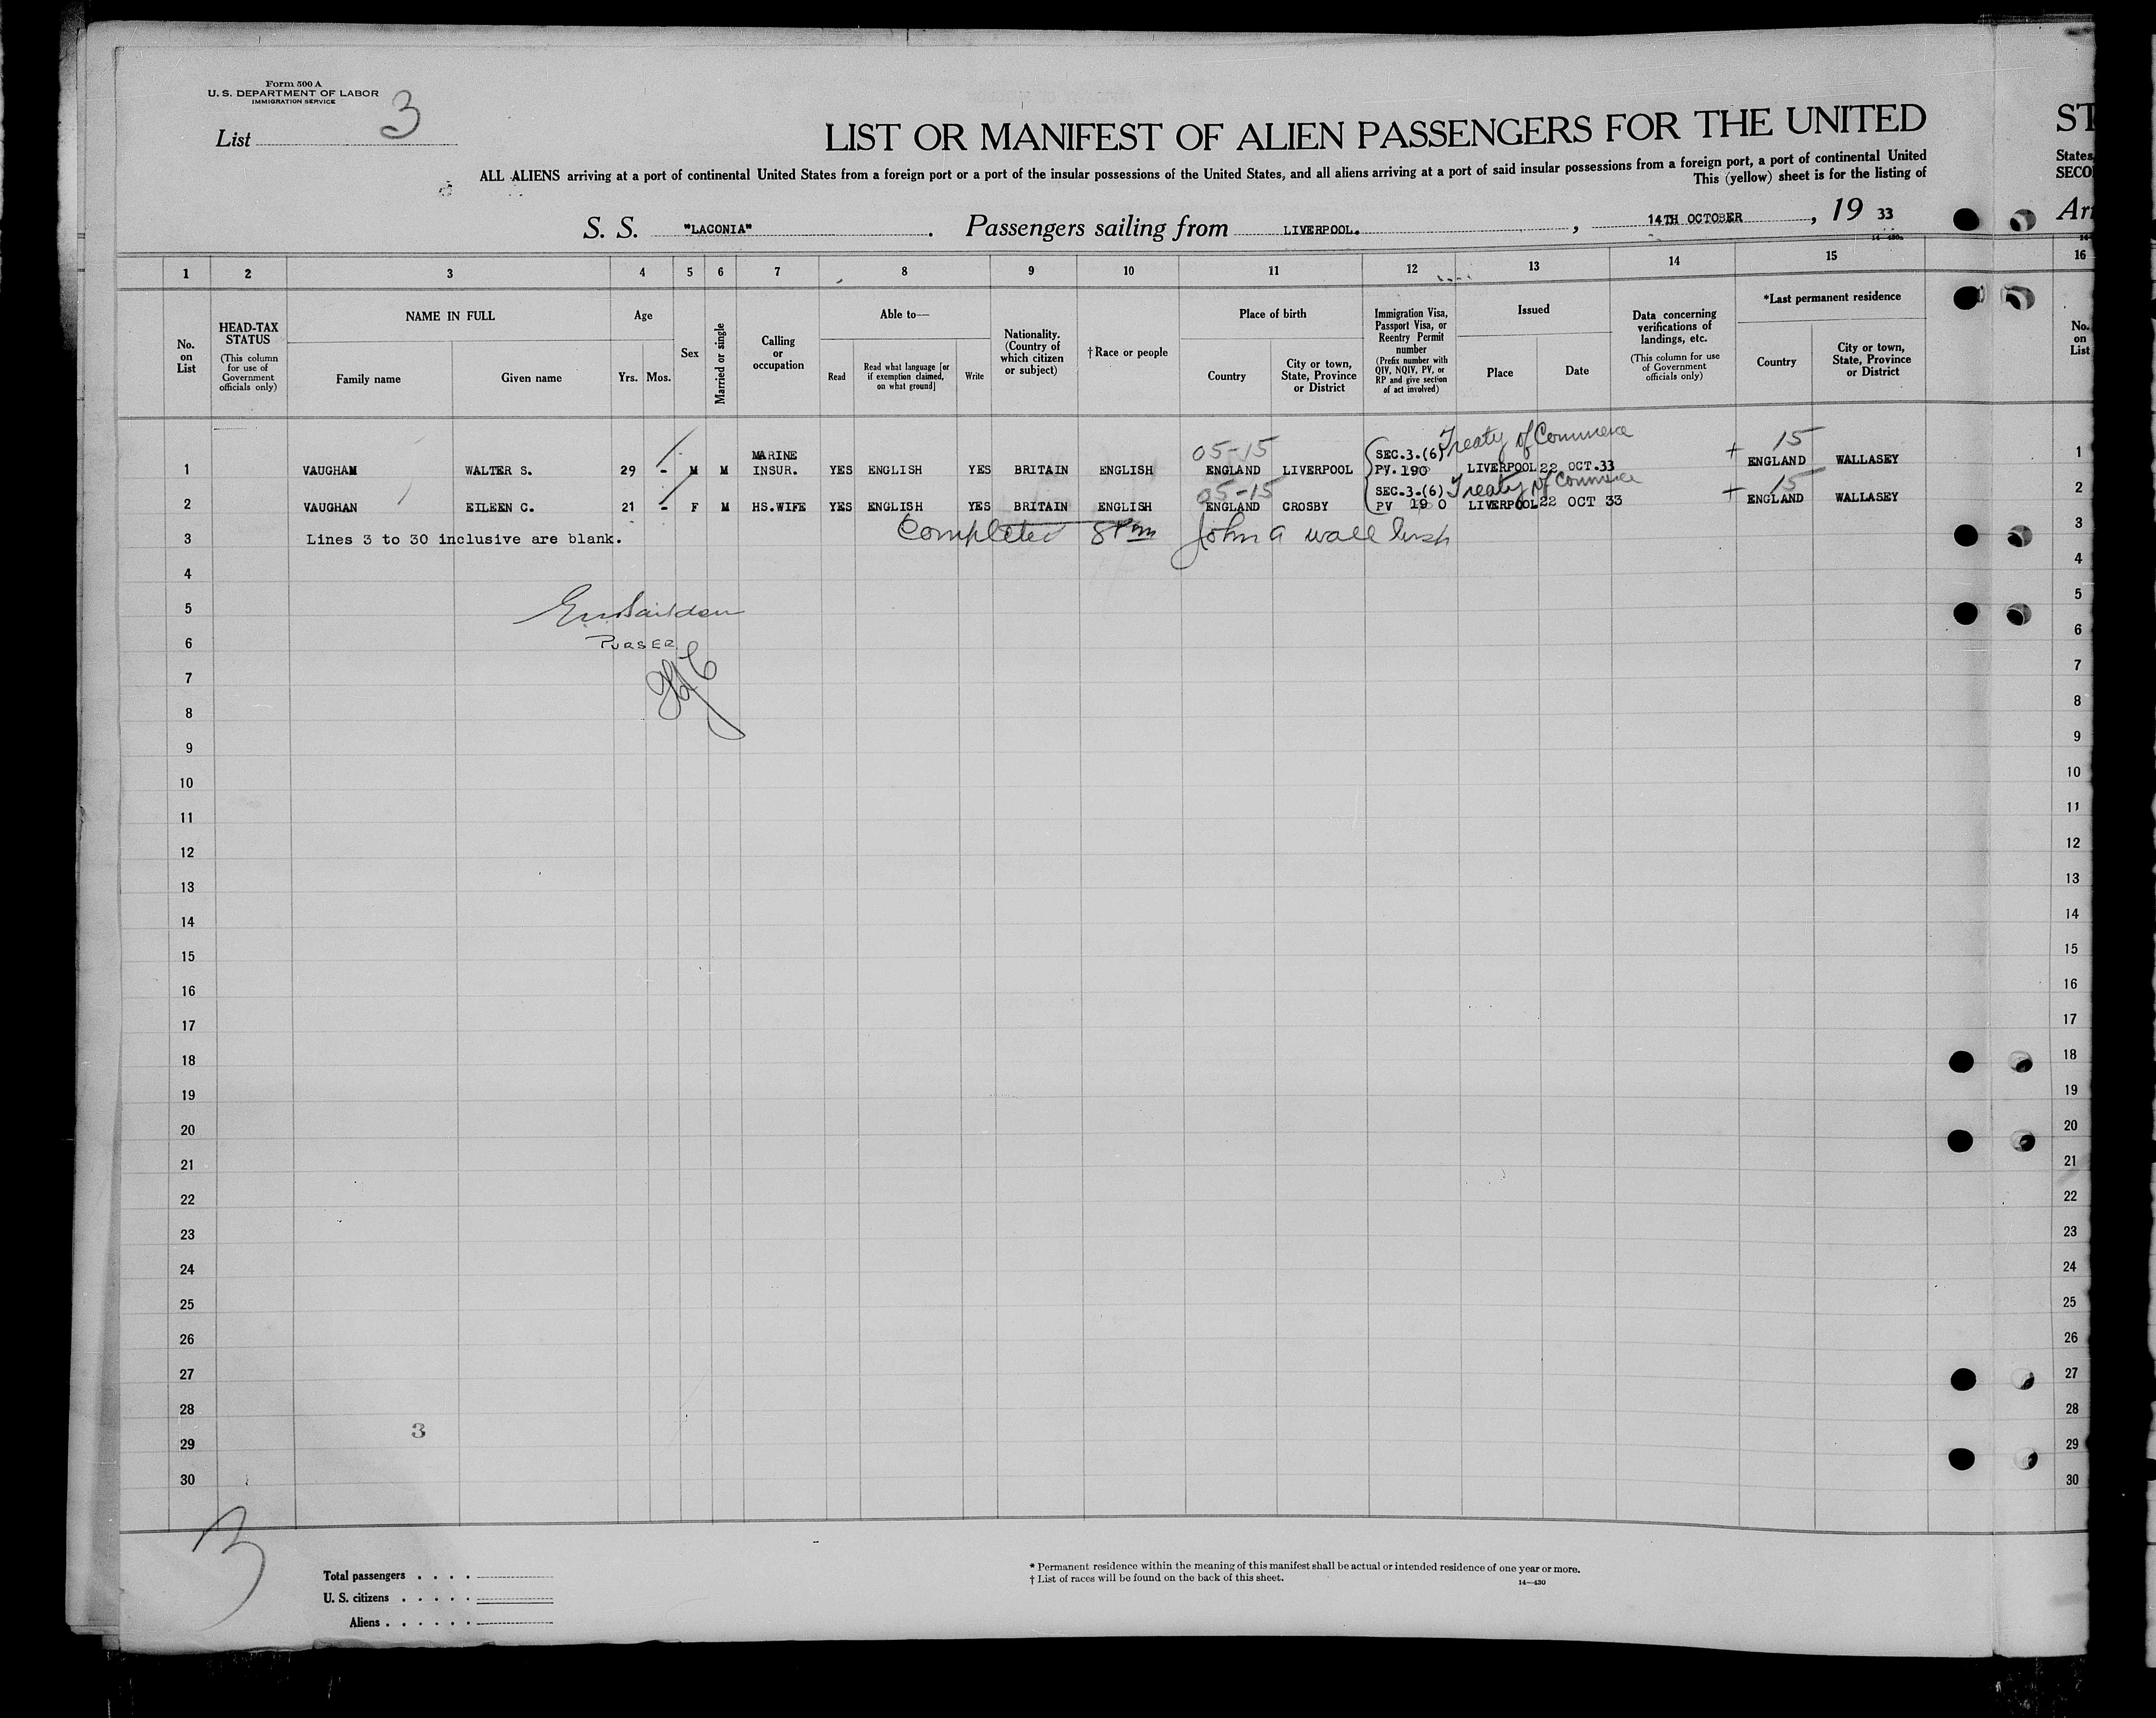 Form 500 A
U. S. DEPARTMENT OF LABOR
IMMIGRATION SERVICE
List 3
LIST OR MANIFEST OF ALIEN PASSENGERS FOR THE UNITED
ST
ALL ALIENS arriving at a port of continental United States from a foreign port or a port of the insular possessions of the United States, and all aliens arriving at a port of said insular possessions from a foreign port, a port of continental United
States
This (yellow) sheet is for the listing of
SECO
S. S. "LACONIA". Passengers sailing from LIVERPOOL. , 14TH OCTOBER, 19 33
Arr
1 2 3 4 5 6 7 8 9 10 11 12 13 14 15 16
No. on List
HEAD-TAX STATUS (This column for use of Government officials only)
NAME IN FULL
Family name Given name
Age
Yrs. Mos.
Sex
Married or single
Calling or occupation
Able to—
Read Read what language [or if exemption claimed, on what ground] Write
Nationality. (Country of which citizen or subject)
†Race or people
Place of birth
Country City or town, State, Province or District
Immigration Visa, Passport Visa, or Reentry Permit number (Prefix number with QIV, NQIV, PV, or RP and give section of act involved)
Issued
Place Date
Data concerning verifications of landings, etc. (This column for use of Government officials only)
*Last permanent residence
Country City or town, State, Province or District
No. on List
MARINE 05-15 SEC.3.(6) Treaty of Commerce + 15
1 VAUGHAM WALTER S. 29 - M M INSUR. YES ENGLISH YES BRITAIN ENGLISH ENGLAND LIVERPOOL PV. 190 LIVERPOOL 22 OCT.33 ENGLAND WALLASEY 1
05-15 SEC.3-(6) Treaty of Commerce + 15
2 VAUGHAN EILEEN C. 21 - F M HS.WIFE YES ENGLISH YES BRITAIN ENGLISH ENGLAND CROSBY PV 19 0 LIVERPOOL 22 OCT 33 ENGLAND WALLASEY 2
3 Lines 3 to 30 inclusive are blank. Completed John a 3
4 4
5 5
6 PURSER 6
7 7
8 8
9 9
10 10
11 11
12 12
13 13
14 14
15 15
16 16
17 17
18 18
19 19
20 20
21 21
22 22
23 23
24 24
25 25
26 26
27 27
28 28
3
29 29
30 30
3
Total passengers . . . .
U. S. citizens . . . . .
Aliens . . . . . .
* Permanent residence within the meaning of this manifest shall be actual or intended residence of one year or more.
† List of races will be found on the back of this sheet.
14—430